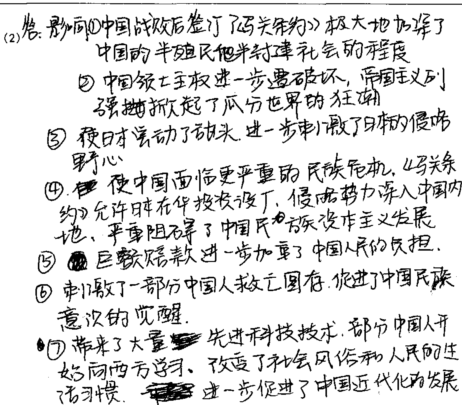 (2)答:影响①中国战败后签订了《马关条约》极大地加深了
中国的半殖民地半封建社会的程度
②中国领土主权进一步遭破坏,帝国主义列
强掀起了瓜分世界的狂潮
③使日本尝到了甜头,进一步刺激了日本的侵略
野心
④.使中国面临更严重的民族危机,《马关条
约》允许日本在华投资设厂,侵略势力深入中国内
地,严重阻碍了中国民族资本主义发展
⑤巨额赔款进一步加重了中国人民的负担.
⑥刺激了一部分中国人救亡图存,促进了中国民族
意识的觉醒.
⑦带来了大量先进科技技术.部分中国人开
始向西方学习、改变了社会风俗和人民的生
活习惯.进一步促进了中国近代化的发展